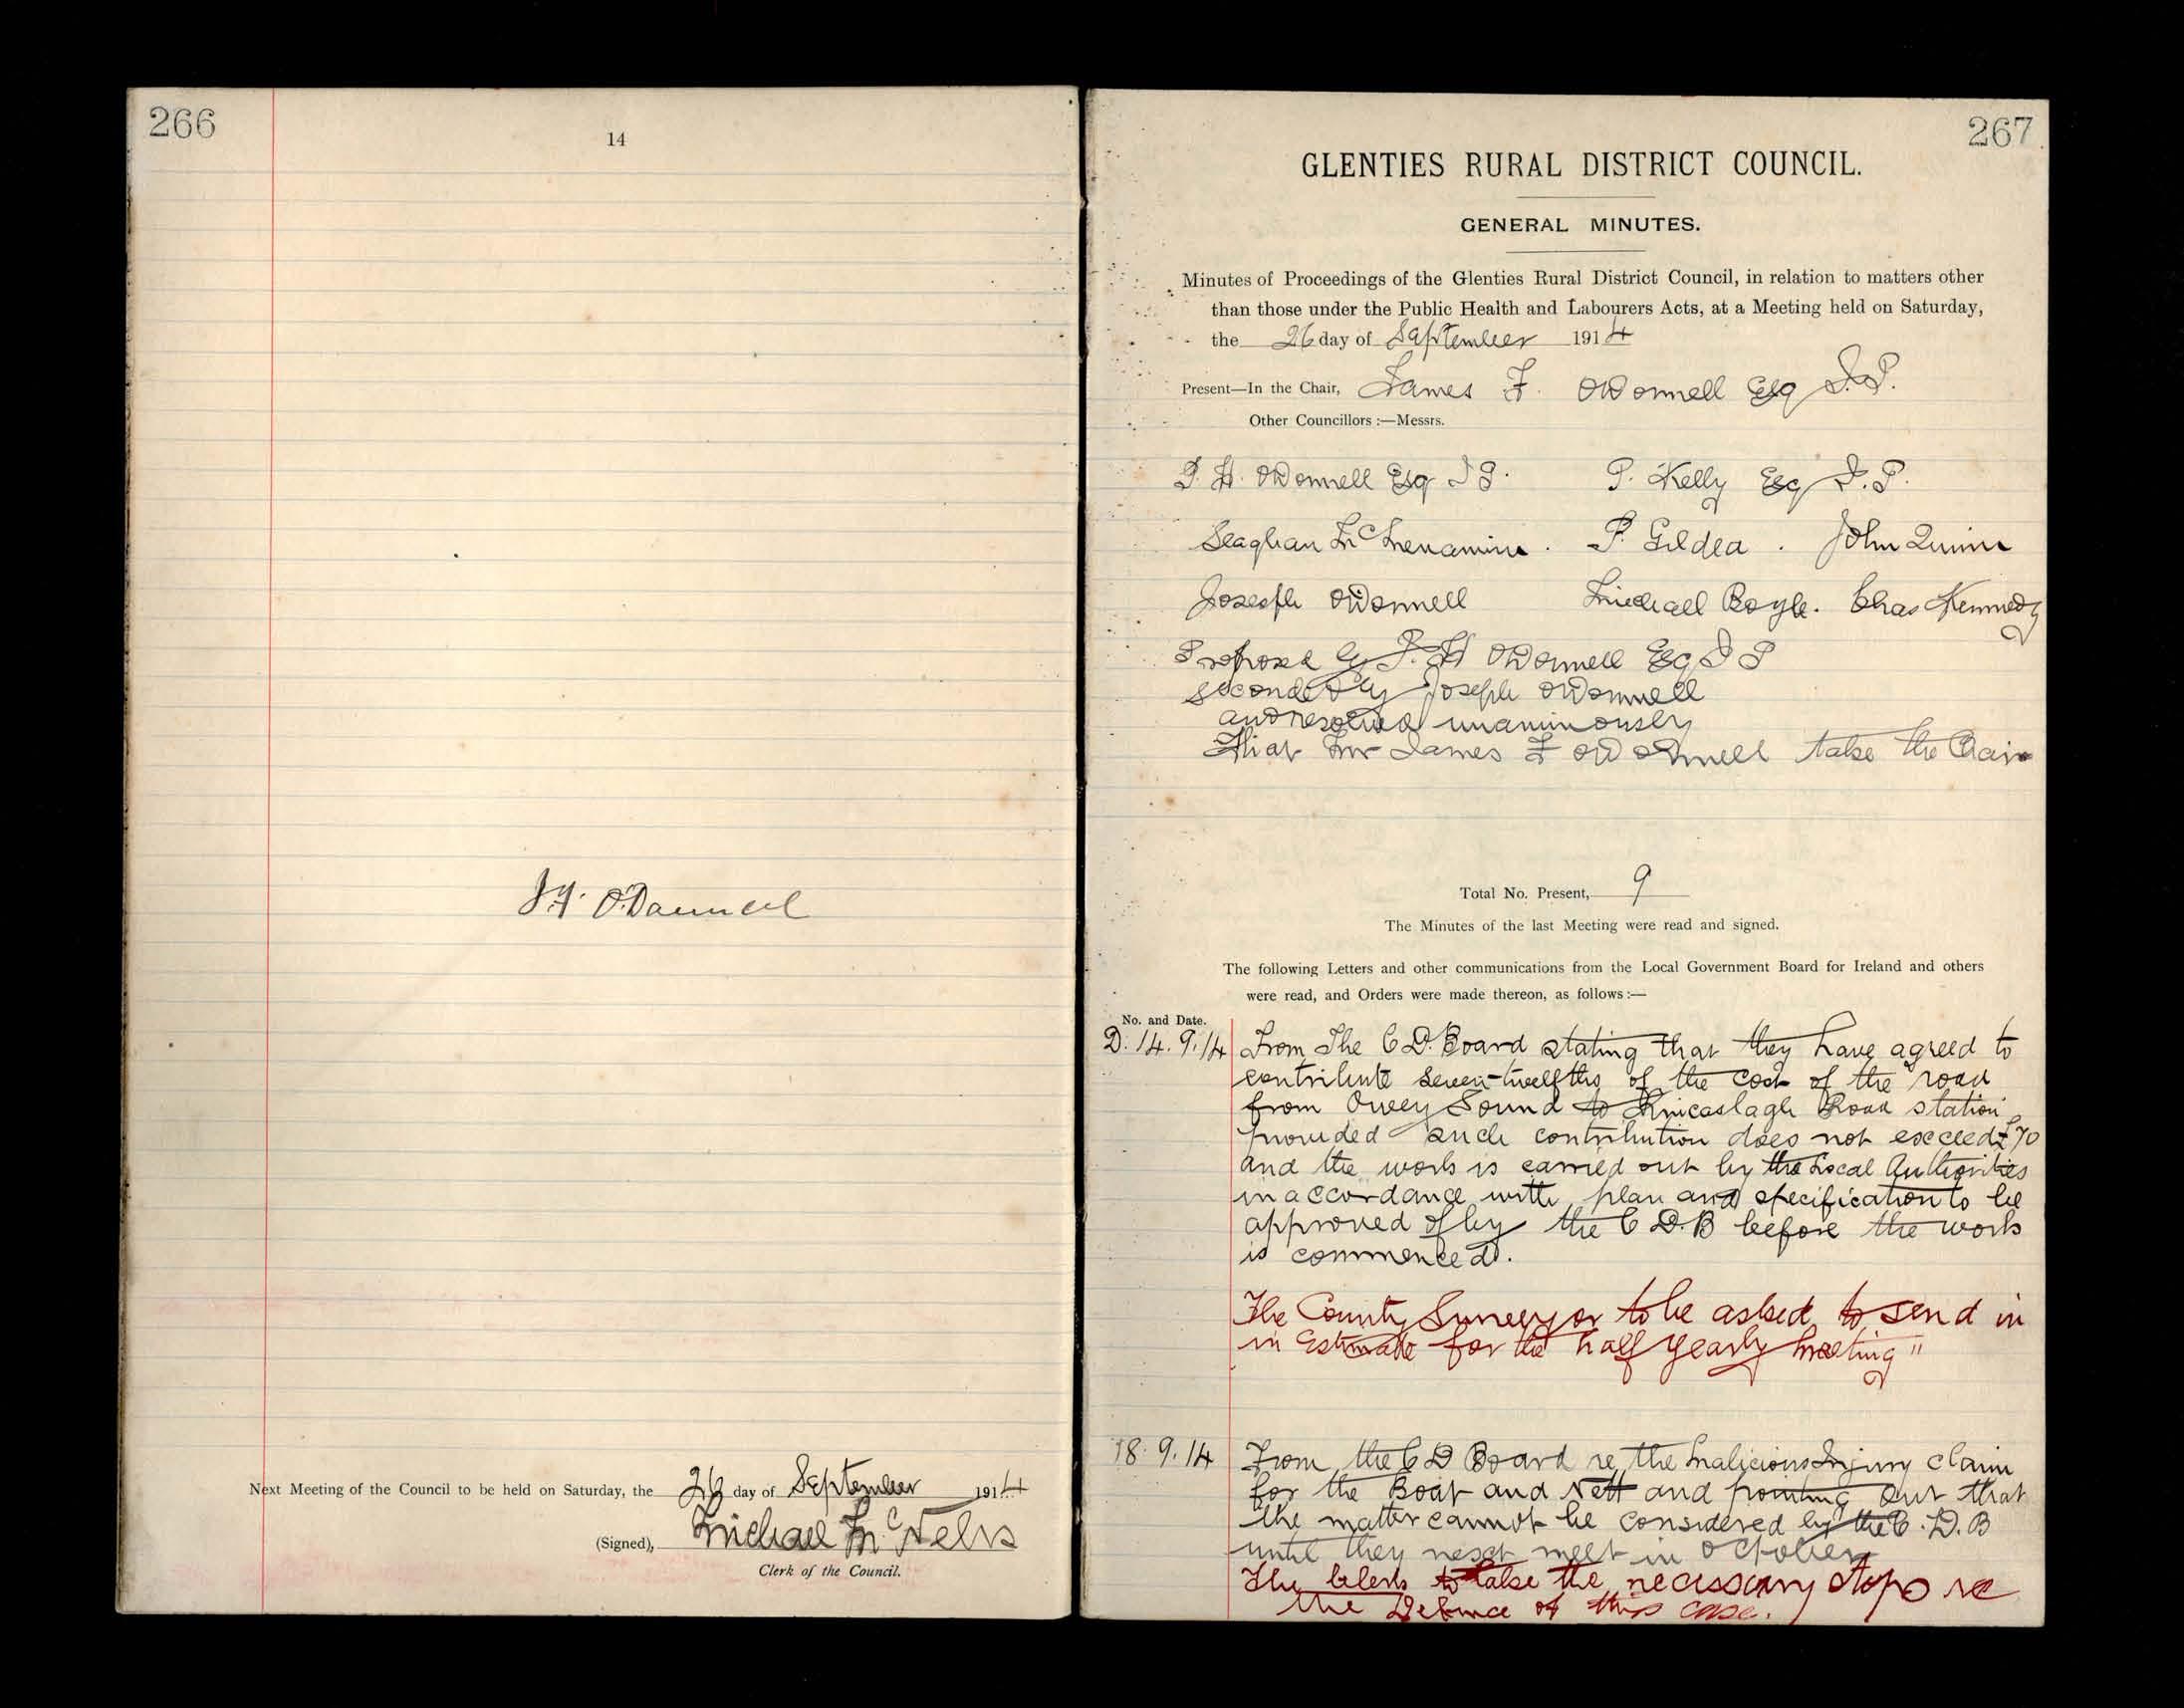 266
14
J.F. O'Donnell
Next Meeting of the Council to be held on Saturday, the 26 day of September 1914
(Signed), Michael McNelis
Clerk of the Council.
267
GLENTIES RURAL DISTRICT COUNCIL.
GENERAL MINUTES.
Minutes of Proceedings of the Glenties Rural District Council, in relation to matters other
than those under the Public Health and Labourers Acts, at a Meeting held on Saturday,
the 26 day of September 1914
Present—In the Chair, James F. O'Donnell Esq J.P.
Other Councillors :—Messrs.
P. H. O'Donnell Esq J P. P. Kelly Esq J.P.
Seaghan McMenamin. P. Gildea. John Quinn
Joseph O'Donnell Michael Boyle. Chas Kennedy
Proposed by P. H O'Donnell Esq J P
seconded by Joseph O'Donnell
and resolved unanimously
That Mr James F O'Donnell take the Chair
Total No. Present, 9
The Minutes of the last Meeting were read and signed.
The following Letters and other communications from the Local Government Board for Ireland and others
were read, and Orders were made thereon, as follows :—
No. and Date.
D. 14. 9. 14 From The C D. Board stating that they have agreed to
contribute seven-twelfths of the cost of the road
from Owey Sound to Knicaslagh Road station
provided such contribution does not exceed £70
and the work is carried out by the Local Authorities
in accordance with plan and specification to be
approved of by the C D.B before the work
is commenced.
The County Surveyor to be asked to send in
in Estimate for the half yearly meeting"
18. 9. 14 From the C D Board re the Malicious Injury claim
for the Boat and Nett and pointing out that
the matter cannot be considered by the C. D. B
until they next meet in October
The Clerk to take the necessary steps re
the Defence of this case.